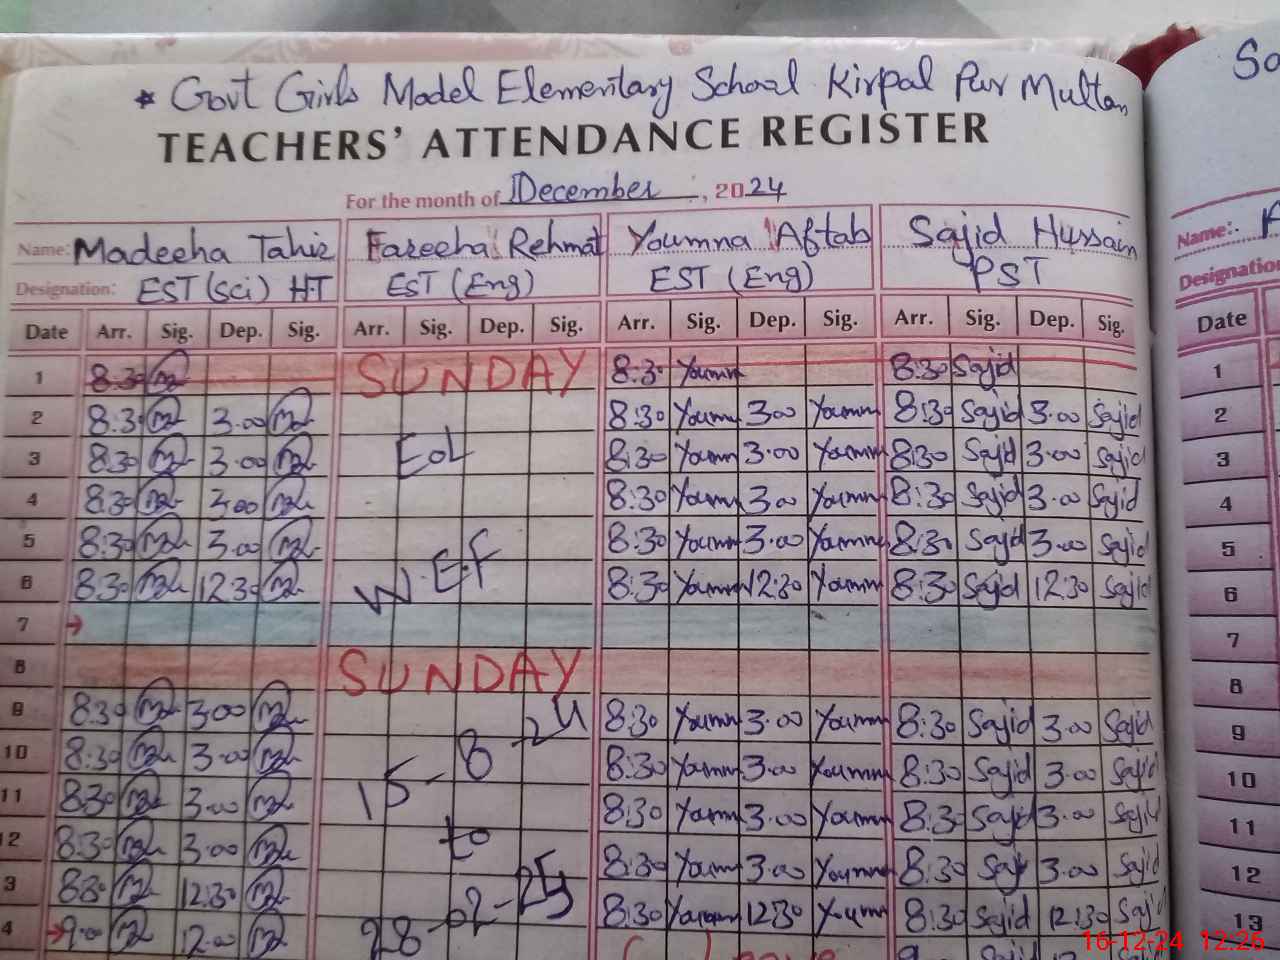 * Govt Girls Model Elementary School Kirpal Pur Multan
TEACHERS' ATTENDANCE REGISTER
For the month of December, 2024
Name: Madeeha Tahir Fareeha Rehmat Youmna Aftab Sajid Hussain Name:
Designation: EST (Sci) H.T EST (Eng) EST (Eng) PST Designation
Date Arr. Sig. Dep. Sig. Arr. Sig. Dep. Sig. Arr. Sig. Dep. Sig. Arr. Sig. Dep. Sig. Date
1 8:30 SUNDAY 8:3 Youmn 8:30 Sajid 1
2 8:30 3.00 8:30 Youmn 3.00 Youmn 8:30 Sajid 3.00 Sajid 2
3 8:30 3.00 EOL 8:30 Youmn 3.00 Youmn 8:30 Sajid 3.00 Sajid 3
4 8:30 3.00 8:30 Youmn 3.00 Youmn 8:30 Sajid 3.00 Sajid 4
5 8:30 3.00 8:30 Youmn 3.00 Youmn 8:30 Sajid 3.00 Sajid 5
6 8:30 12:30 W.E.F 8:30 Youmn 12:30 Youmn 8:30 Sajid 12:30 Sajid 6
7 7
8 SUNDAY 8
9 8:30 3.00 8:30 Youmn 3.00 Youmn 8:30 Sajid 3.00 Sajid 9
10 8:30 3.00 15-8-24 8:30 Youmn 3.00 Youmn 8:30 Sajid 3.00 Sajid 10
11 8:30 3.00 8:30 Youmn 3.00 Youmn 8:30 Sajid 3.00 Sajid 11
12 8:30 3.00 to 8:30 Youmn 3.00 Youmn 8:30 Sajid 3.00 Sajid 12
3 8:30 12:30 8:30 Youmn 12:30 Youmn 8:30 Sajid 12:30 Sajid 13
4 9.00 12.00 28-02-25
16-12-24 12:26